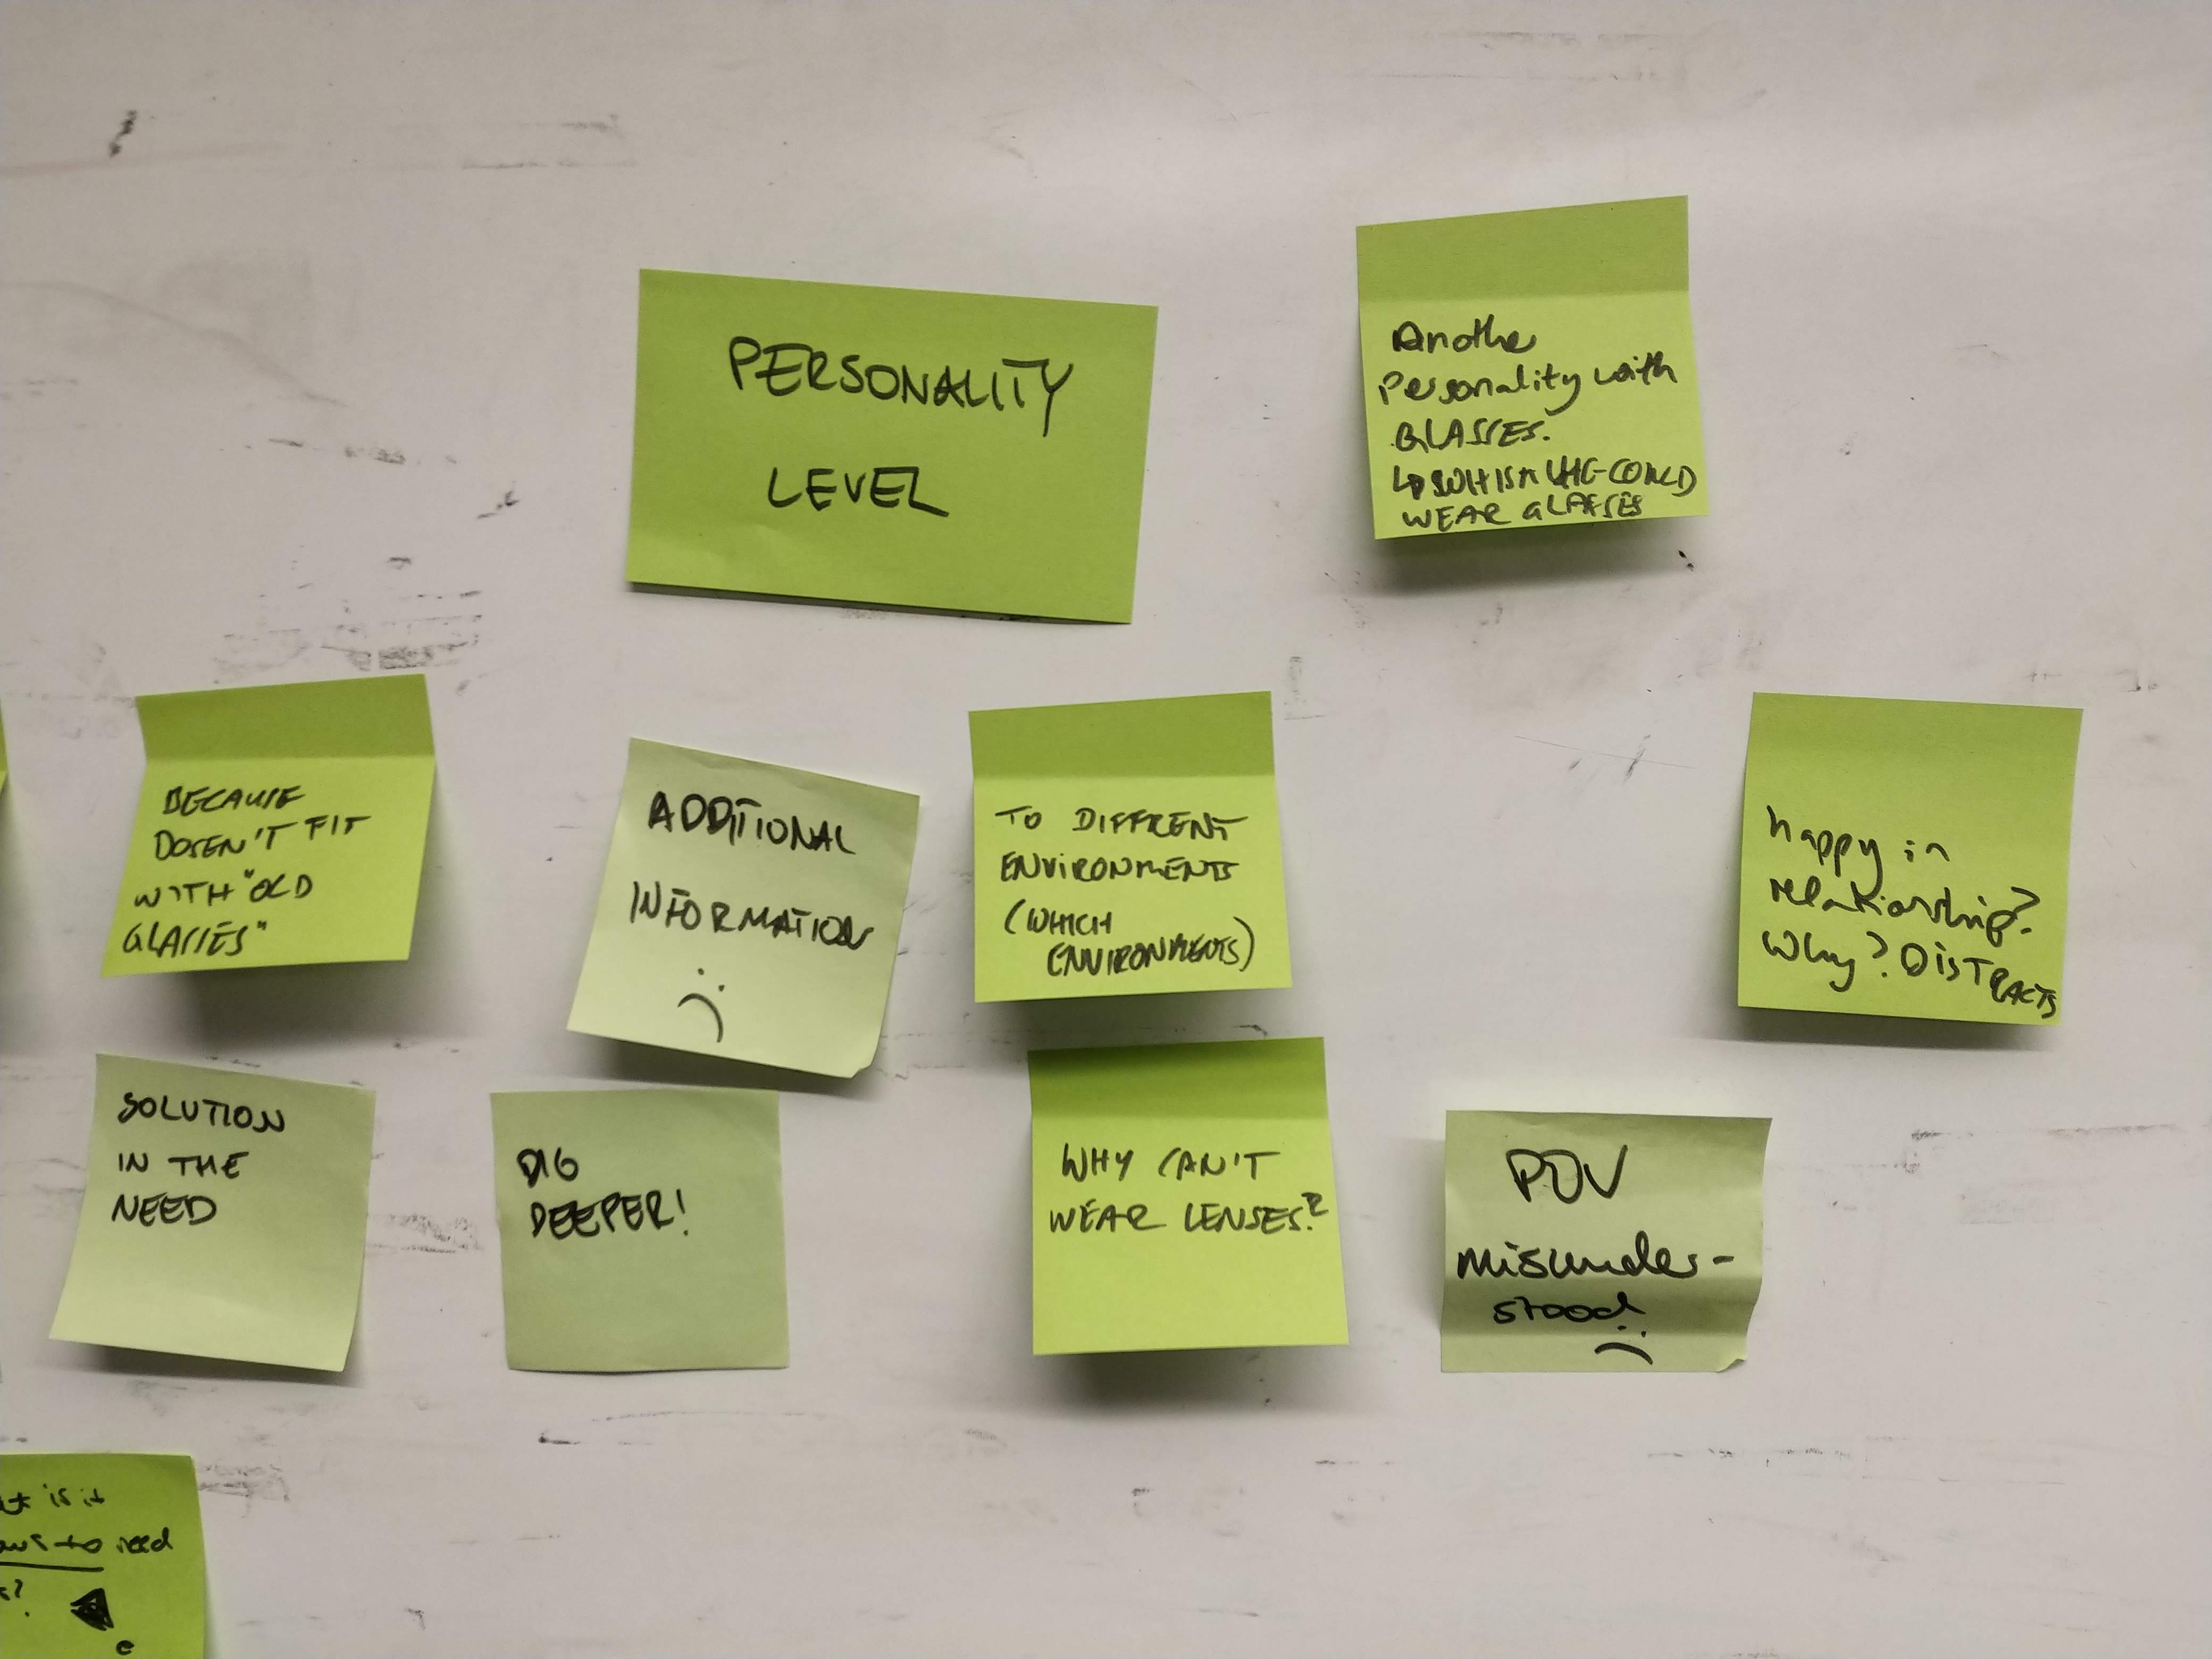 PERSONALITY
LEVEL
Another
Personality with
GLASSES.
COULD
WEAR GLASSES
BECAUSE
DOSEN'T FIT
WITH "OLD
GLASSES"
ADDITIONAL
INFORMATION
:(
TO DIFFRENT
ENVIRONMENTS
(WHICH
ENVIRONMENTS)
happy in
relationship?
Why? DISTRACTS
SOLUTION
IN THE
NEED
DIG
DEEPER!
WHY CAN'T
WEAR LENSES?
POV
misunder-
stood
:(
is it
to need